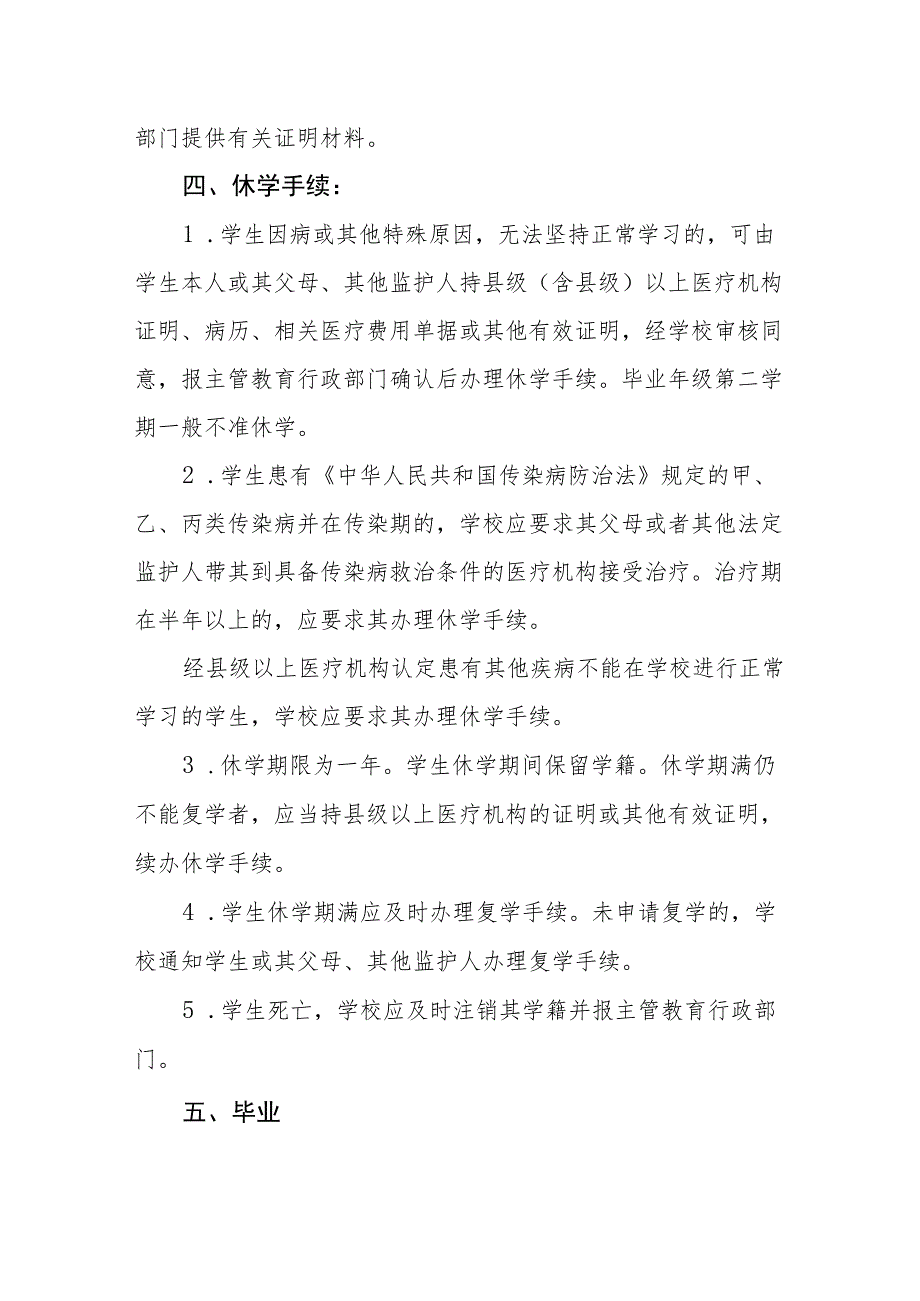 部门提供有关证明材料。
四、休学手续：
1 .学生因病或其他特殊原因，无法坚持正常学习的，可由
学生本人或其父母、其他监护人持县级（含县级）以上医疗机构
证明、病历、相关医疗费用单据或其他有效证明，经学校审核同
意，报主管教育行政部门确认后办理休学手续。毕业年级第二学
期一般不准休学。
2 .学生患有《中华人民共和国传染病防治法》规定的甲、
乙、丙类传染病并在传染期的，学校应要求其父母或者其他法定
监护人带其到具备传染病救治条件的医疗机构接受治疗。治疗期
在半年以上的，应要求其办理休学手续。
经县级以上医疗机构认定患有其他疾病不能在学校进行正常
学习的学生，学校应要求其办理休学手续。
3 .休学期限为一年。学生休学期间保留学籍。休学期满仍
不能复学者，应当持县级以上医疗机构的证明或其他有效证明，
续办休学手续。
4 .学生休学期满应及时办理复学手续。未申请复学的，学
校通知学生或其父母、其他监护人办理复学手续。
5 .学生死亡，学校应及时注销其学籍并报主管教育行政部
门。
五、毕业